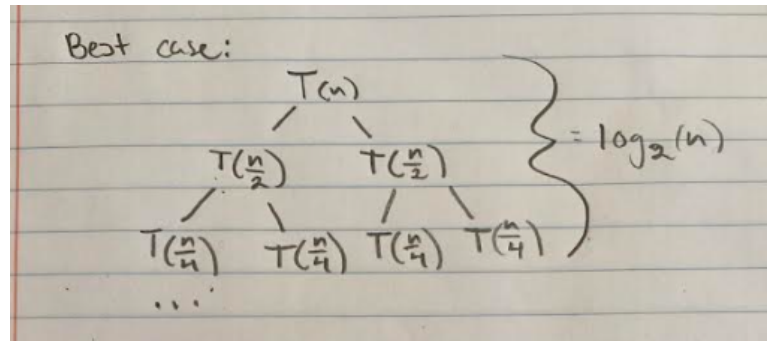 Best case:
T(n)
= log₂(n)
T(n/2) T(n/2)
T(n/4) T(n/4) T(n/4) T(n/4)
...